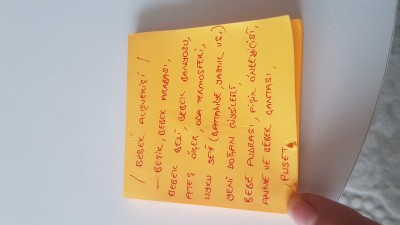 / BEBEK ALIŞVERİŞİ /
— BEŞİK, BEBEK ARABASI,
BEBEK BEZİ, BEBEK BANYOSU,
ATEŞ ÖLÇER, ODA TERMOSFERİ,
UYKU SETİ (BATTANİYE, YASTIK VS),
YENİ DOĞAN GİYSİLERİ,
BEBE PUDRASI, PİŞİK ÖNLEYİCİSİ,
ANNE VE BEBEK ÇANTASI,
(PUSET)